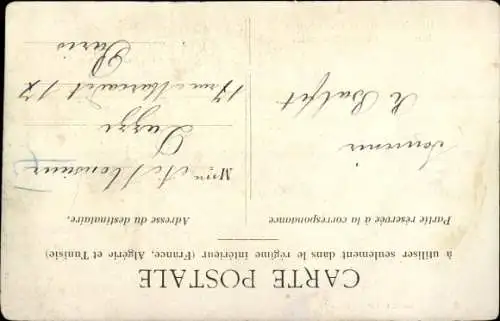 CARTE POSTALE
à utiliser seulement dans le régime intérieur (France, Algérie et Tunisie)
Partie réservée à la correspondance
Adresse du destinataire.
Souvenir
M et Monsieur
17 rue 17
Paris